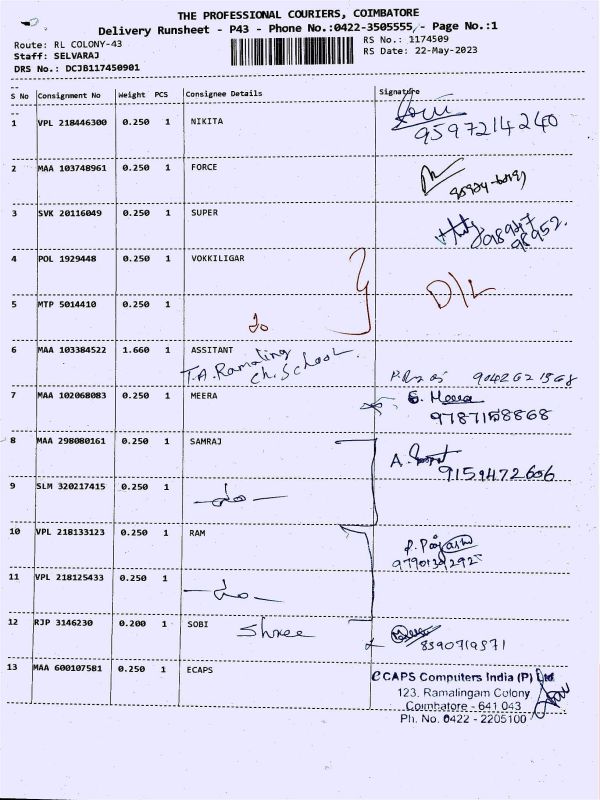 THE PROFESSIONAL COURIERS, COIMBATORE
Delivery Runsheet - P43 - Phone No.:0422-3505555 - Page No.:1
Route: RL COLONY-43
Staff: SELVARAJ
DRS No.: DCJB117450901
RS No.: 1174509
RS Date: 22-May-2023
S No Consignment No Weight PCS Consignee Details Signature
1 VPL 218446300 0.250 1 NIKITA
9597214240
2 MAA 103748961 0.250 1 FORCE
3 SVK 20116049 0.250 1 SUPER
4 POL 1929448 0.250 1 VOKKILIGAR
D/L
5 MTP 5014410 0.250 1
do
6 MAA 103384522 1.660 1 ASSITANT
T.A. Ramaling
ch. School.
7 MAA 102068083 0.250 1 MEERA
S. Meera
9787158868
8 MAA 298080161 0.250 1 SAMRAJ
A.
9159472606
9 SLM 320217415 0.250 1
-do-
10 VPL 218133123 0.250 1 RAM
11 VPL 218125433 0.250 1
-do-
12 RJP 3146230 0.200 1 SOBI Shree
8390719571
13 MAA 600107581 0.250 1 ECAPS
eCAPS Computers India (P) Ltd
123, Ramalingam Colony
Coimbatore - 641 043
Ph. No. 0422 - 2205100